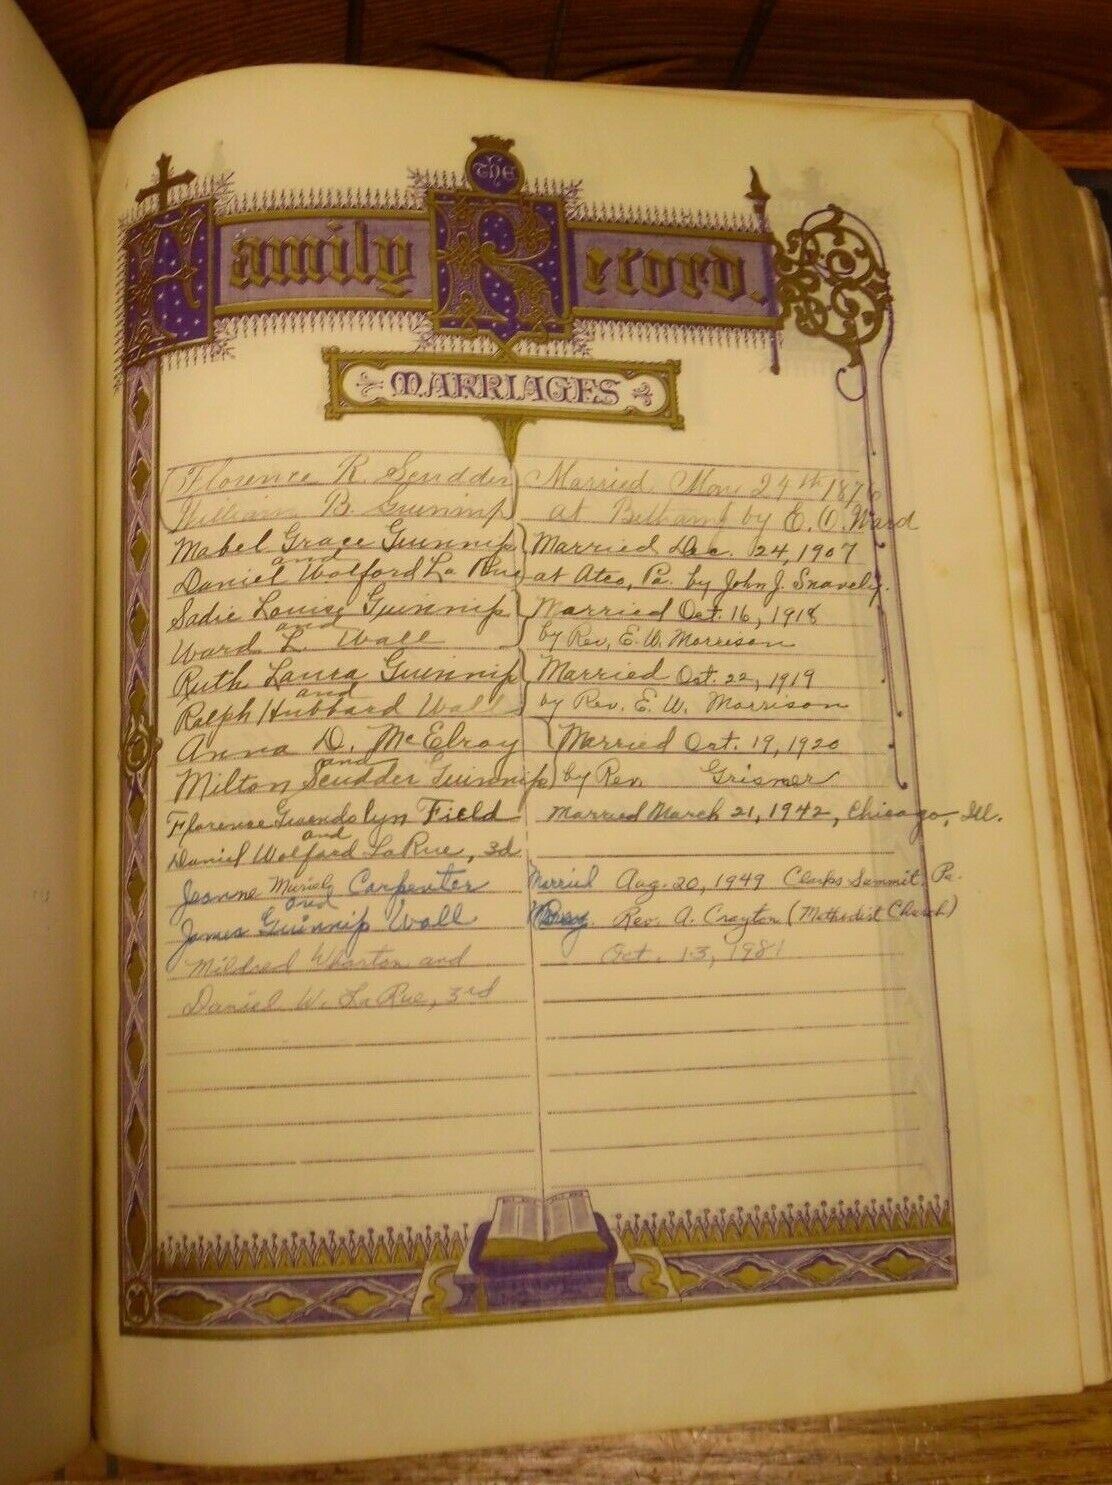 The
Family Record.
MARRIAGES
Florence R. Scudder Married Nov 29th 1876
William B. Guinnip at Bethany by E. O. Ward
Mabel Grace Guinnip Married Dec. 24, 1907
and
Daniel Wolford La Rue at Atco, Pa. by John J. Snavely.
Sadie Louise Guinnip Married Oct. 16, 1918
and
Ward L. Wall by Rev. E. W. Morrison
Ruth Laura Guinnip Married Oct. 22, 1919
and
Ralph Hubbard Wall by Rev. E. W. Morrison
Anna D. McElroy Married Oct. 19, 1920
and
Milton Scudder Guinnip by Rev. Grismer
Florence Gwendolyn Field Married March 21, 1942, Chicago, Ill.
and
Daniel Wolford LaRue, 3d
Jeanne Muriel Carpenter Married Aug. 20, 1949 Clarks Summit, Pa.
and
James Guinnip Wall Rev. A. Crayton (Methodist Church)
Mildred Wharton and Oct. 13, 1981
Daniel W. LaRue, 3rd